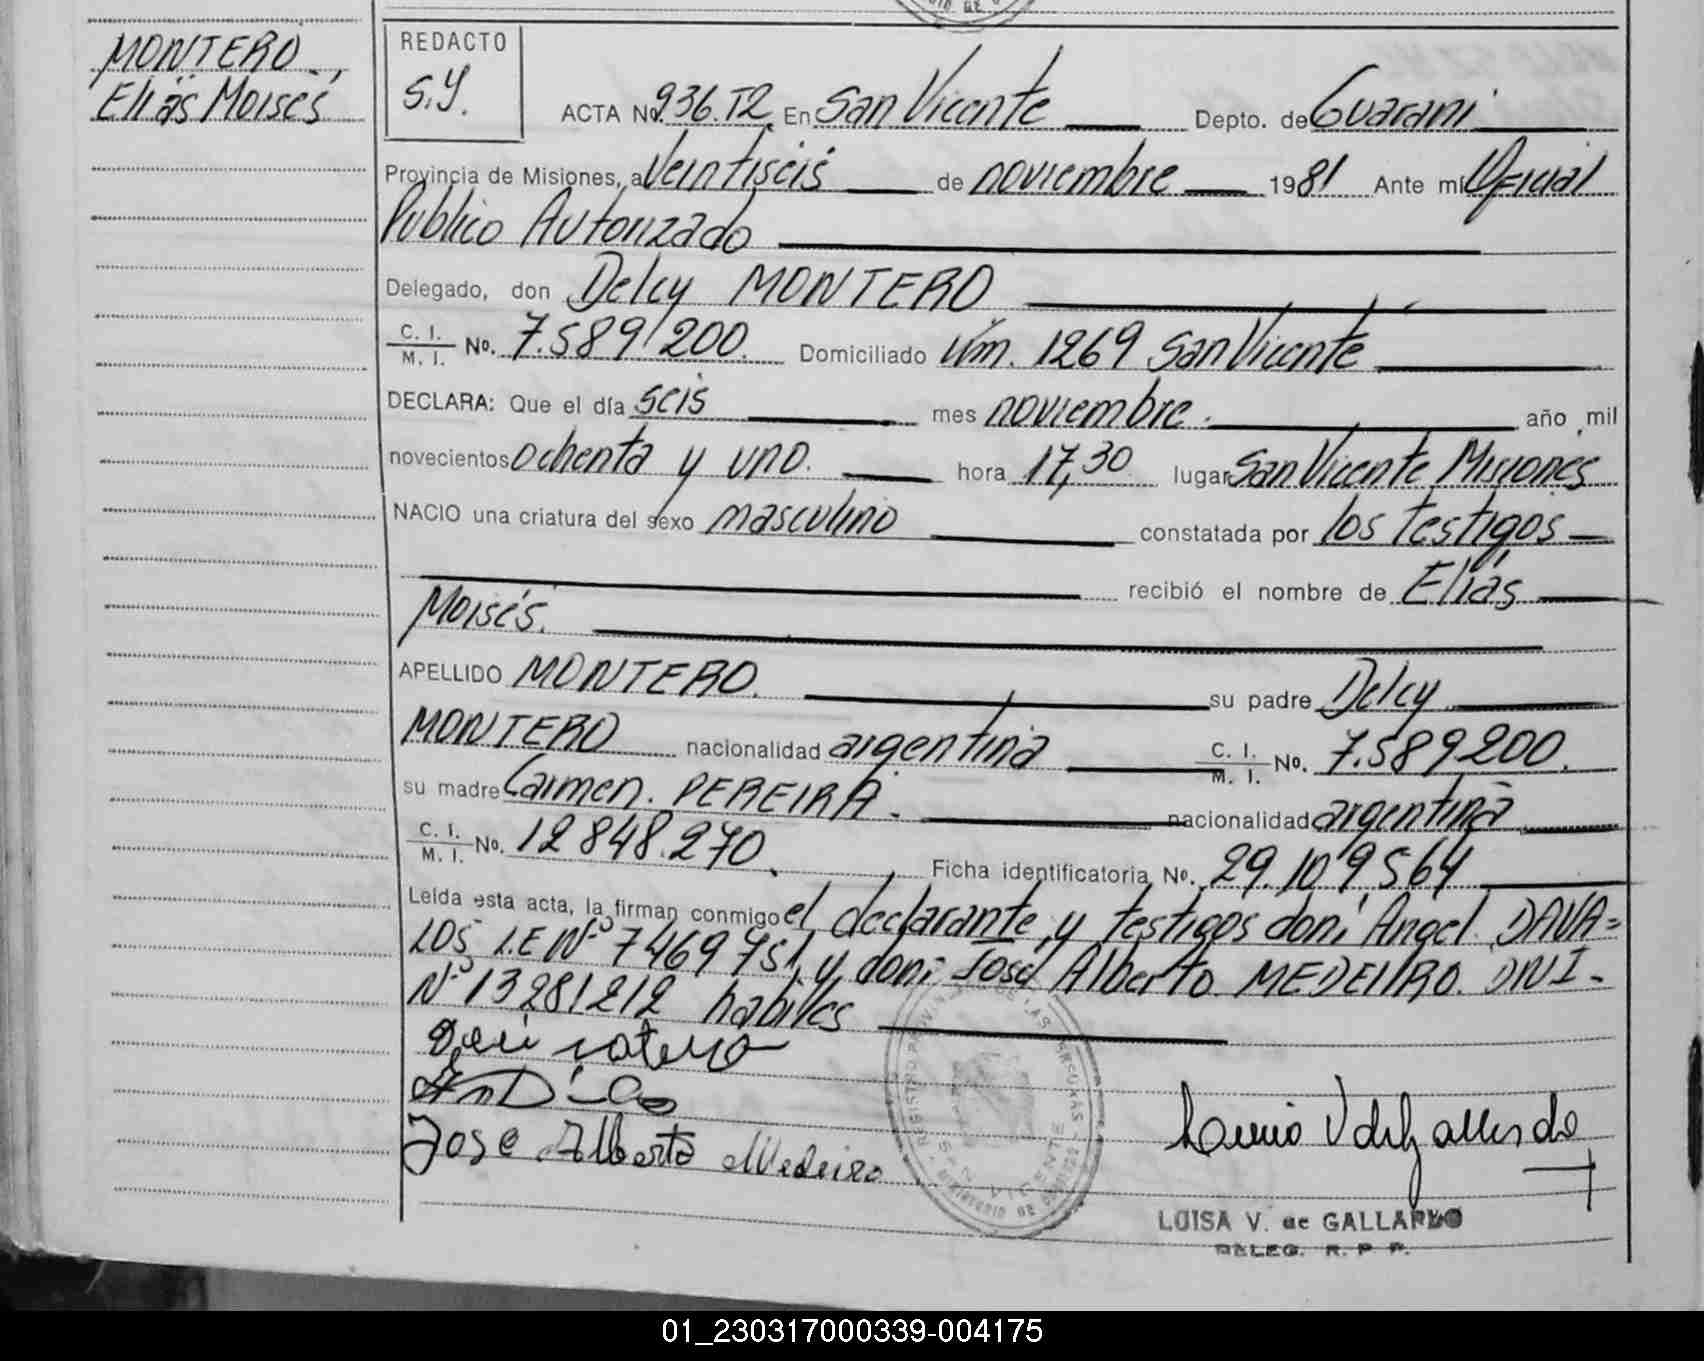 MONTERO.,
Elías Moisés
REDACTO
S.Y.
ACTA Nº 936.T2. En San Vicente Depto. de Guaraní
Provincia de Misiones, a Veintiseis de noviembre 1981 Ante mí Oficial
Publico Autorizado
Delegado, don Delcy MONTERO
C. I. / M. I. No. 7.589.200. Domiciliado Km. 1269 San Vicente
DECLARA: Que el día seis mes noviembre. año mil
novecientos ochenta y uno. hora 17,30 lugar San Vicente Misiones
NACIO una criatura del sexo masculino constatada por los testigos
recibió el nombre de Elías
Moisés.
APELLIDO MONTERO. su padre Delcy
MONTERO nacionalidad argentina C. I. / M. I. No. 7.589200.
su madre Carmen. PEREIRA. nacionalidad argentina
C. I. / M. I. No. 12848.270. Ficha identificatoria No. 29.109564
Leída esta acta, la firman conmigo el declarante y testigos don: Angel DAVA=
LOS L.E Nº 7469751 y don: José Alberto MEDEIRO. DNI-
Nº 13281212 habiles
Jose Alberto Medeiro
SAN VICENTE
LUISA V. de GALLARDO
DELEG. R. P. P.
01_230317000339-004175